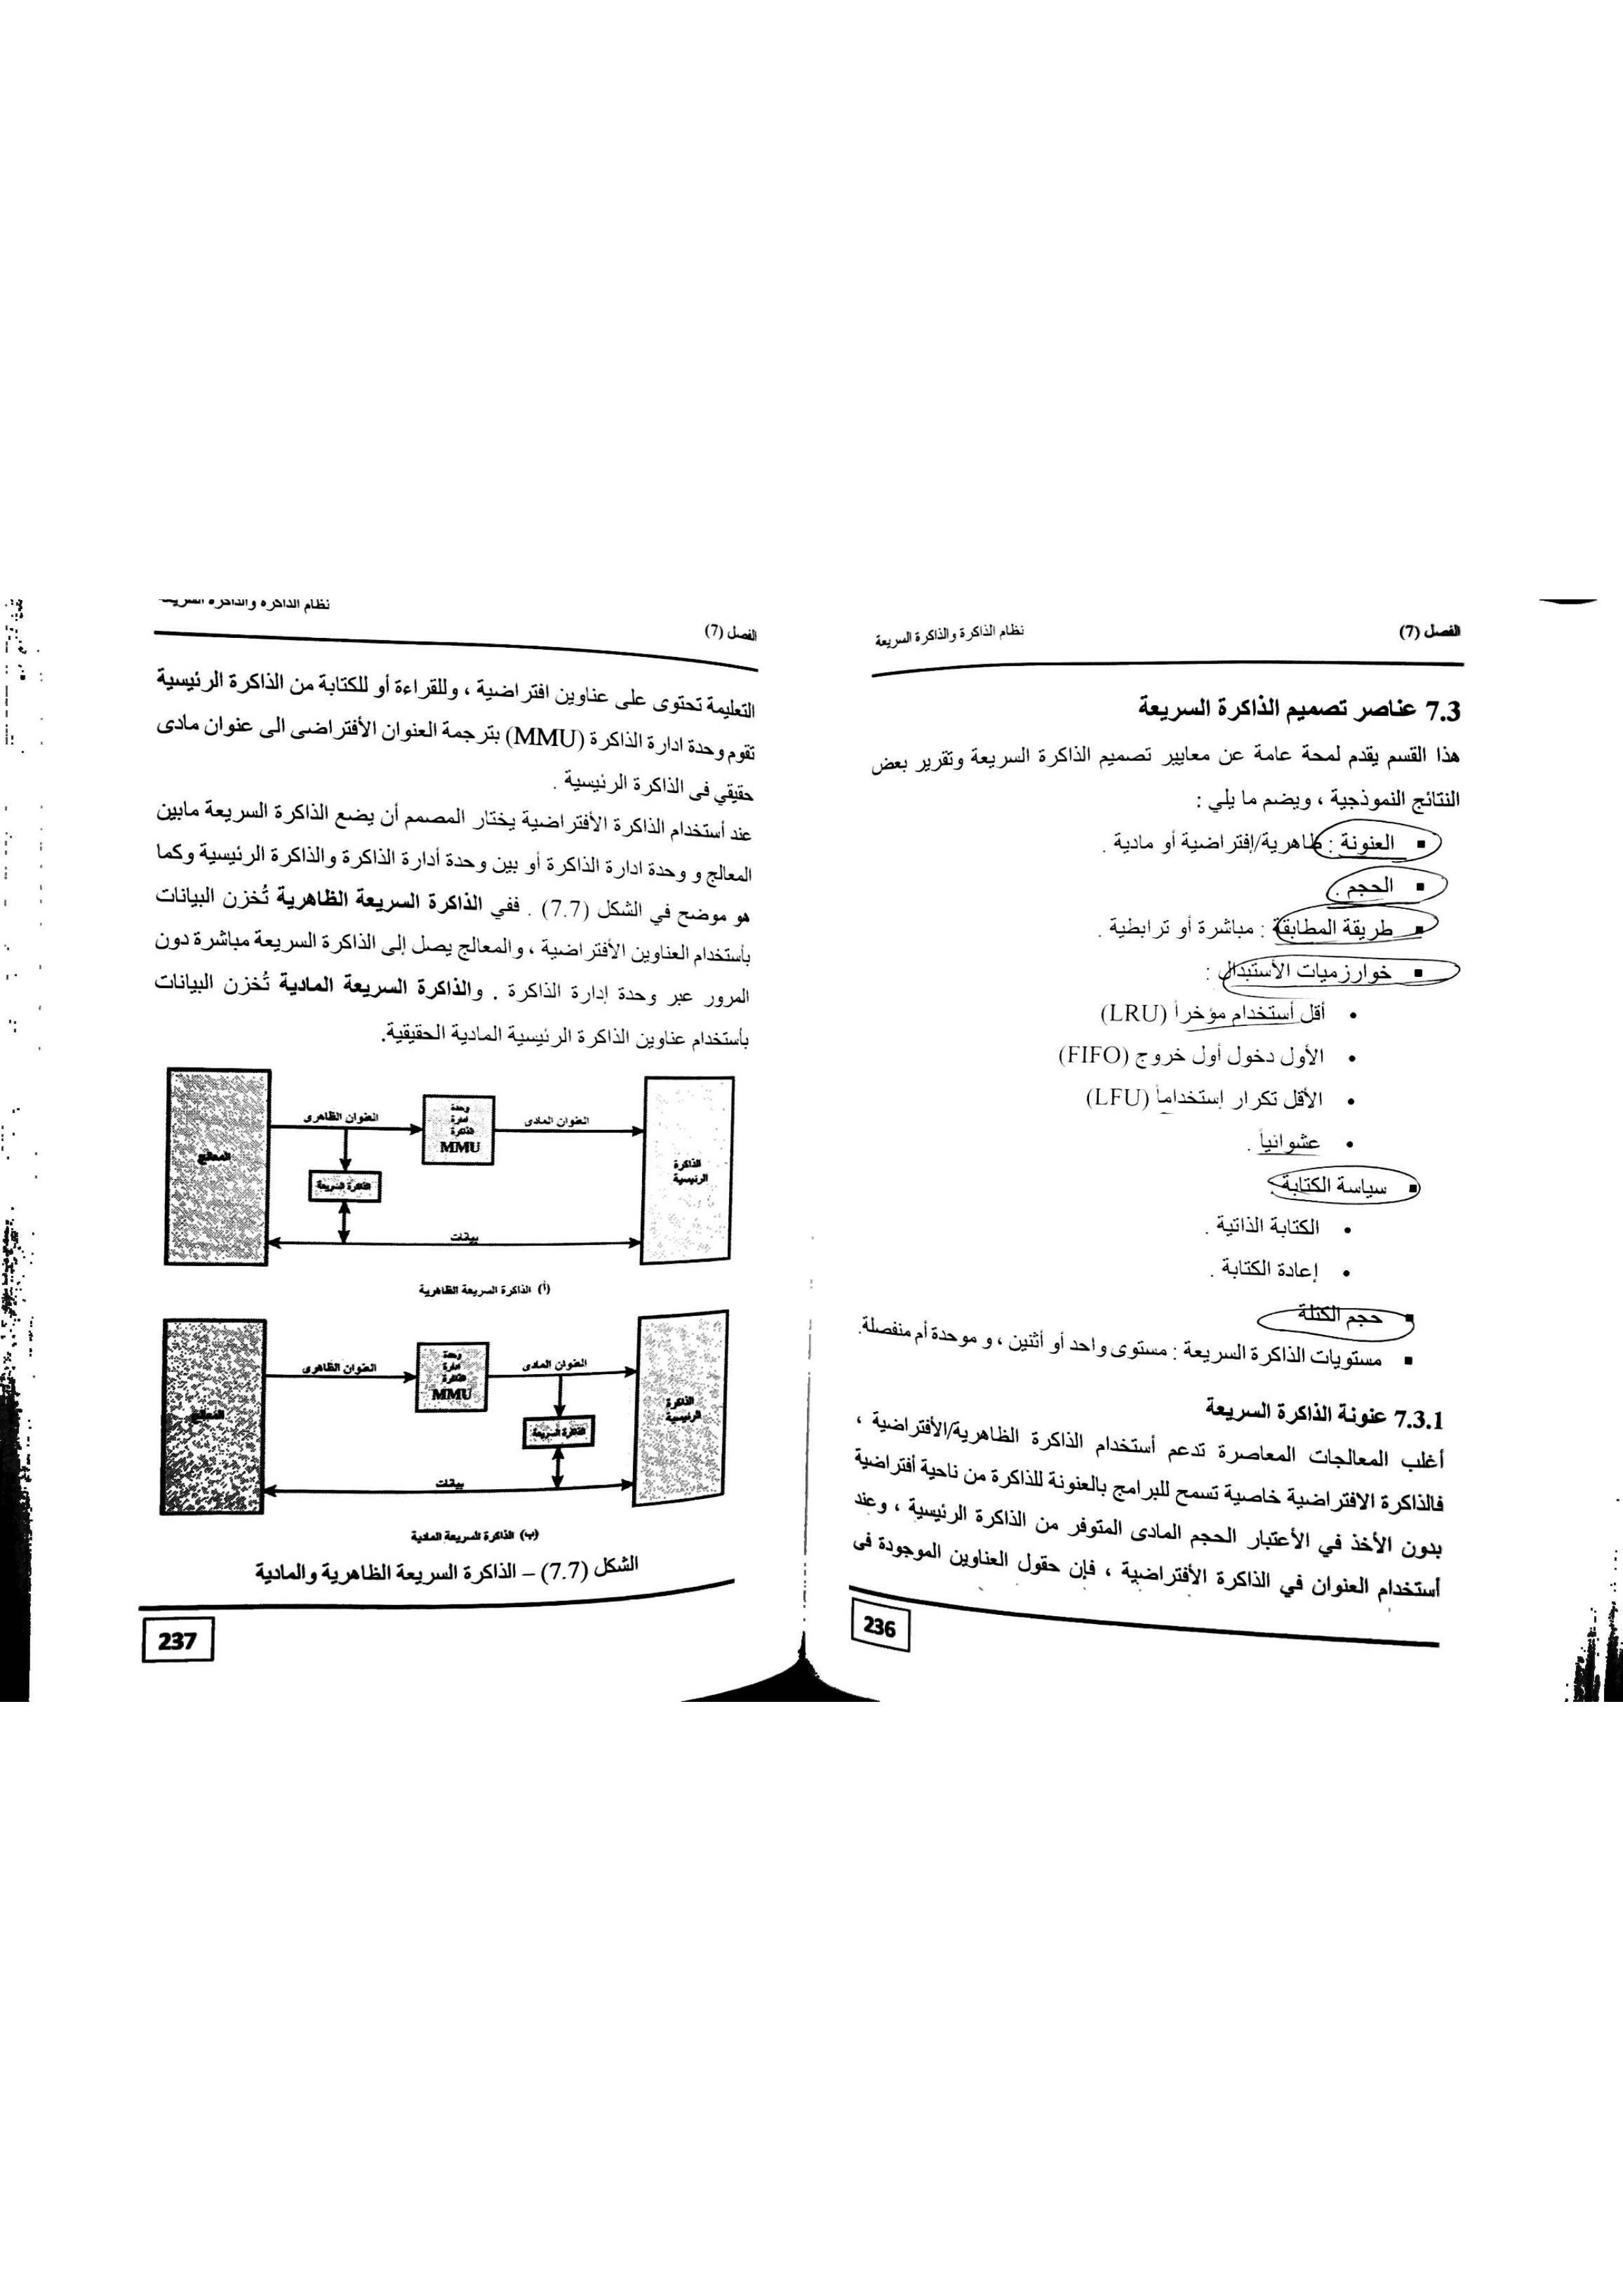 الفصل (7)
نظام الذاكرة والذاكرة السريعة
7.3 عناصر تصميم الذاكرة السريعة
هذا القسم يقدم لمحة عامة عن معايير تصميم الذاكرة السريعة وتقرير بعض
النتائج النموذجية ، ويضم ما يلي :
▪ العنونة : ظاهرية/إفتراضية أو مادية .
▪ الحجم .
▪ طريقة المطابقة : مباشرة أو ترابطية .
▪ خوارزميات الأستبدال :
• أقل أستخدام مؤخراً (LRU)
• الأول دخول أول خروج (FIFO)
• الأقل تكرار إستخداماً (LFU)
• عشوانياً .
▪ سياسة الكتابة :
• الكتابة الذاتية .
• إعادة الكتابة .
▪ حجم الكتلة
▪ مستويات الذاكرة السريعة : مستوى واحد أو أثنين ، و موحدة أم منفصلة.
7.3.1 عنونة الذاكرة السريعة
أغلب المعالجات المعاصرة تدعم أستخدام الذاكرة الظاهرية/الأفتراضية ،
فالذاكرة الافتراضية خاصية تسمح للبرامج بالعنونة للذاكرة من ناحية أفتراضية
بدون الأخذ في الأعتبار الحجم المادى المتوفر من الذاكرة الرئيسية ، وعند
أستخدام العنوان في الذاكرة الأفتراضية ، فإن حقول العناوين الموجودة فى
236
نظام الذاكرة والذاكرة السريعة
الفصل (7)
التعليمة تحتوى على عناوين افتراضية ، وللقراءة أو للكتابة من الذاكرة الرئيسية
تقوم وحدة ادارة الذاكرة (MMU) بترجمة العنوان الأفتراضى الى عنوان مادى
حقيقي فى الذاكرة الرئيسية .
عند أستخدام الذاكرة الأفتراضية يختار المصمم أن يضع الذاكرة السريعة مابين
المعالج و وحدة ادارة الذاكرة أو بين وحدة أدارة الذاكرة والذاكرة الرئيسية وكما
هو موضح في الشكل (7.7) . ففي الذاكرة السريعة الظاهرية تُخزن البيانات
بأستخدام العناوين الأفتراضية ، والمعالج يصل إلى الذاكرة السريعة مباشرة دون
المرور عبر وحدة إدارة الذاكرة . والذاكرة السريعة المادية تُخزن البيانات
بأستخدام عناوين الذاكرة الرئيسية المادية الحقيقية.
المعالج
العنوان الظاهرى
وحدة
ادارة
الذاكرة
MMU
العنوان المادى
الذاكرة
الرئيسية
الذاكرة السريعة
بيانات
(أ) الذاكرة السريعة الظاهرية
المعالج
العنوان الظاهرى
وحدة
ادارة
الذاكرة
MMU
العنوان المادى
الذاكرة
الرئيسية
الذاكرة السريعة
بيانات
(ب) الذاكرة السريعة المادية
الشكل (7.7) – الذاكرة السريعة الظاهرية والمادية
237